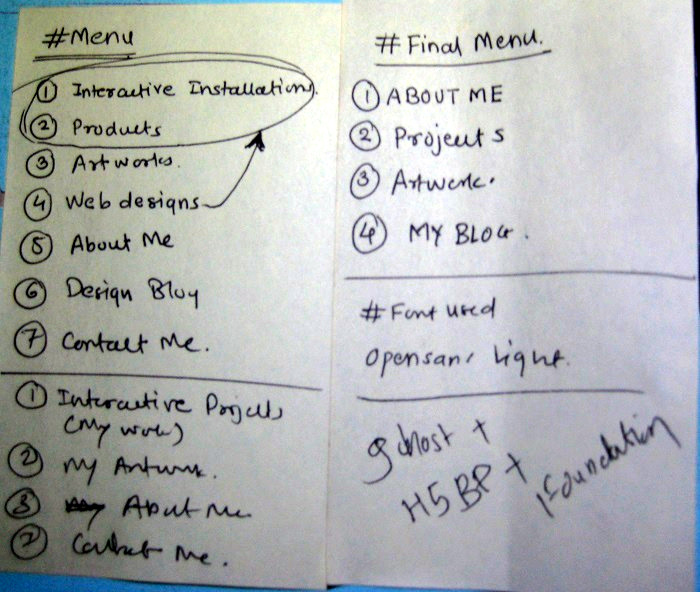 #Menu
① Interactive Installations.
② Products
③ Artworks.
④ Web designs
⑤ About Me
⑥ Design Blog
⑦ Contact Me.
① Interactive Projects
(My work)
② My Artwork.
③ About Me
⑦ Contact Me.
#Final Menu.
① ABOUT ME
② Projects
③ Artwork.
④ MY BLOG.
#Font used
Opensans Light.
ghost +
H5BP +
Foundation